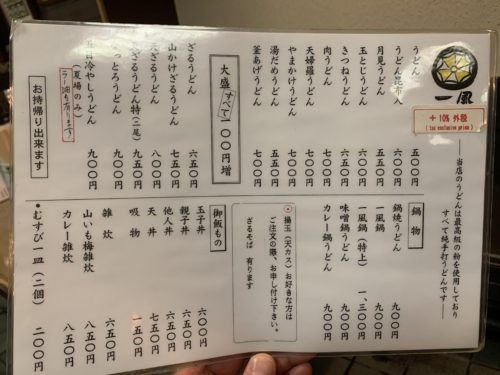 一風
+10% 外税
(tax exclusive price)
当店のうどんは最高級の粉を使用しており
すべて純手打うどんです
うどん 五〇〇円
うどん昆布入
月見うどん
玉とじうどん
きつねうどん
肉うどん
天婦羅うどん
やまかけうどん 七〇〇円
湯だめうどん 五五〇円
釜あげうどん 七〇〇円
大盛 すべて 一〇〇円増
ざるうどん 六五〇円
山かけざるうどん 七五〇円
天ざるうどん 八〇〇円
ざるうどん特(二尾)
っとろうどん
冷やしうどん 九〇〇円
(夏場のみ)
ラー油も有ります
お持帰り出来ます
鍋物
鍋焼うどん 九〇〇円
一風鍋 九〇〇円
一風鍋(特上) 一、三〇〇円
味噌鍋うどん 九〇〇円
カレー鍋うどん 九〇〇円
揚玉(天カス)お好きな方は
ご注文の際、お申し付け下さい。
ざるそば 有ります
御飯もの
玉子丼 六〇〇円
親子丼 六五〇円
他人丼 六五〇円
天丼 七五〇円
吸物 一五〇円
雑炊 六五〇円
山いも梅雑炊 八五〇円
カレー雑炊 八五〇円
●むすび一皿(二個) 二〇〇円